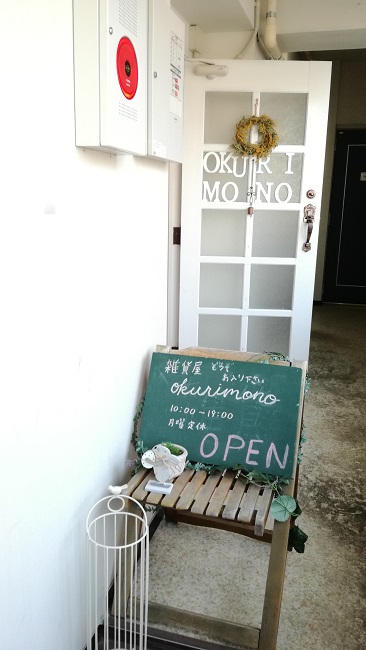 OKURI
MONO
雑貨屋 どうぞ
お入り下さい
okurimono
10:00~19:00
月曜定休
OPEN